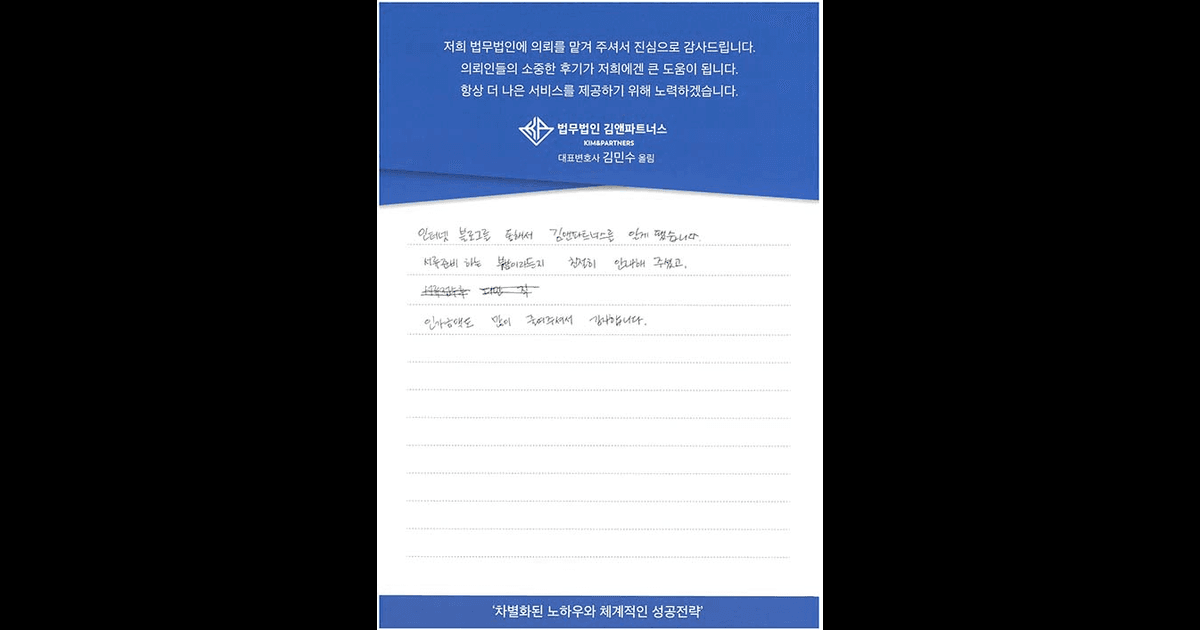 저희 법무법인에 의뢰를 맡겨 주셔서 진심으로 감사드립니다.
의뢰인들의 소중한 후기가 저희에겐 큰 도움이 됩니다.
항상 더 나은 서비스를 제공하기 위해 노력하겠습니다.
법무법인 김앤파트너스
KIM&PARTNERS
대표변호사 김민수 올림
인터넷 블로그를 통해서 김앤파트너스를 알게 됐습니다.
서류준비 하는 부분이라든지 친절히 안내해 주셨고,
인가금액도 많이 줄여주셔서 감사합니다.
'차별화된 노하우와 체계적인 성공전략'